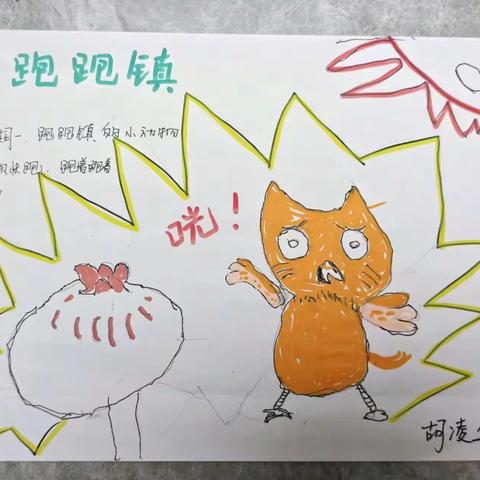 跑跑镇
一、跑跑镇的小动物
快跑、跑着跑着
咣！
胡凌